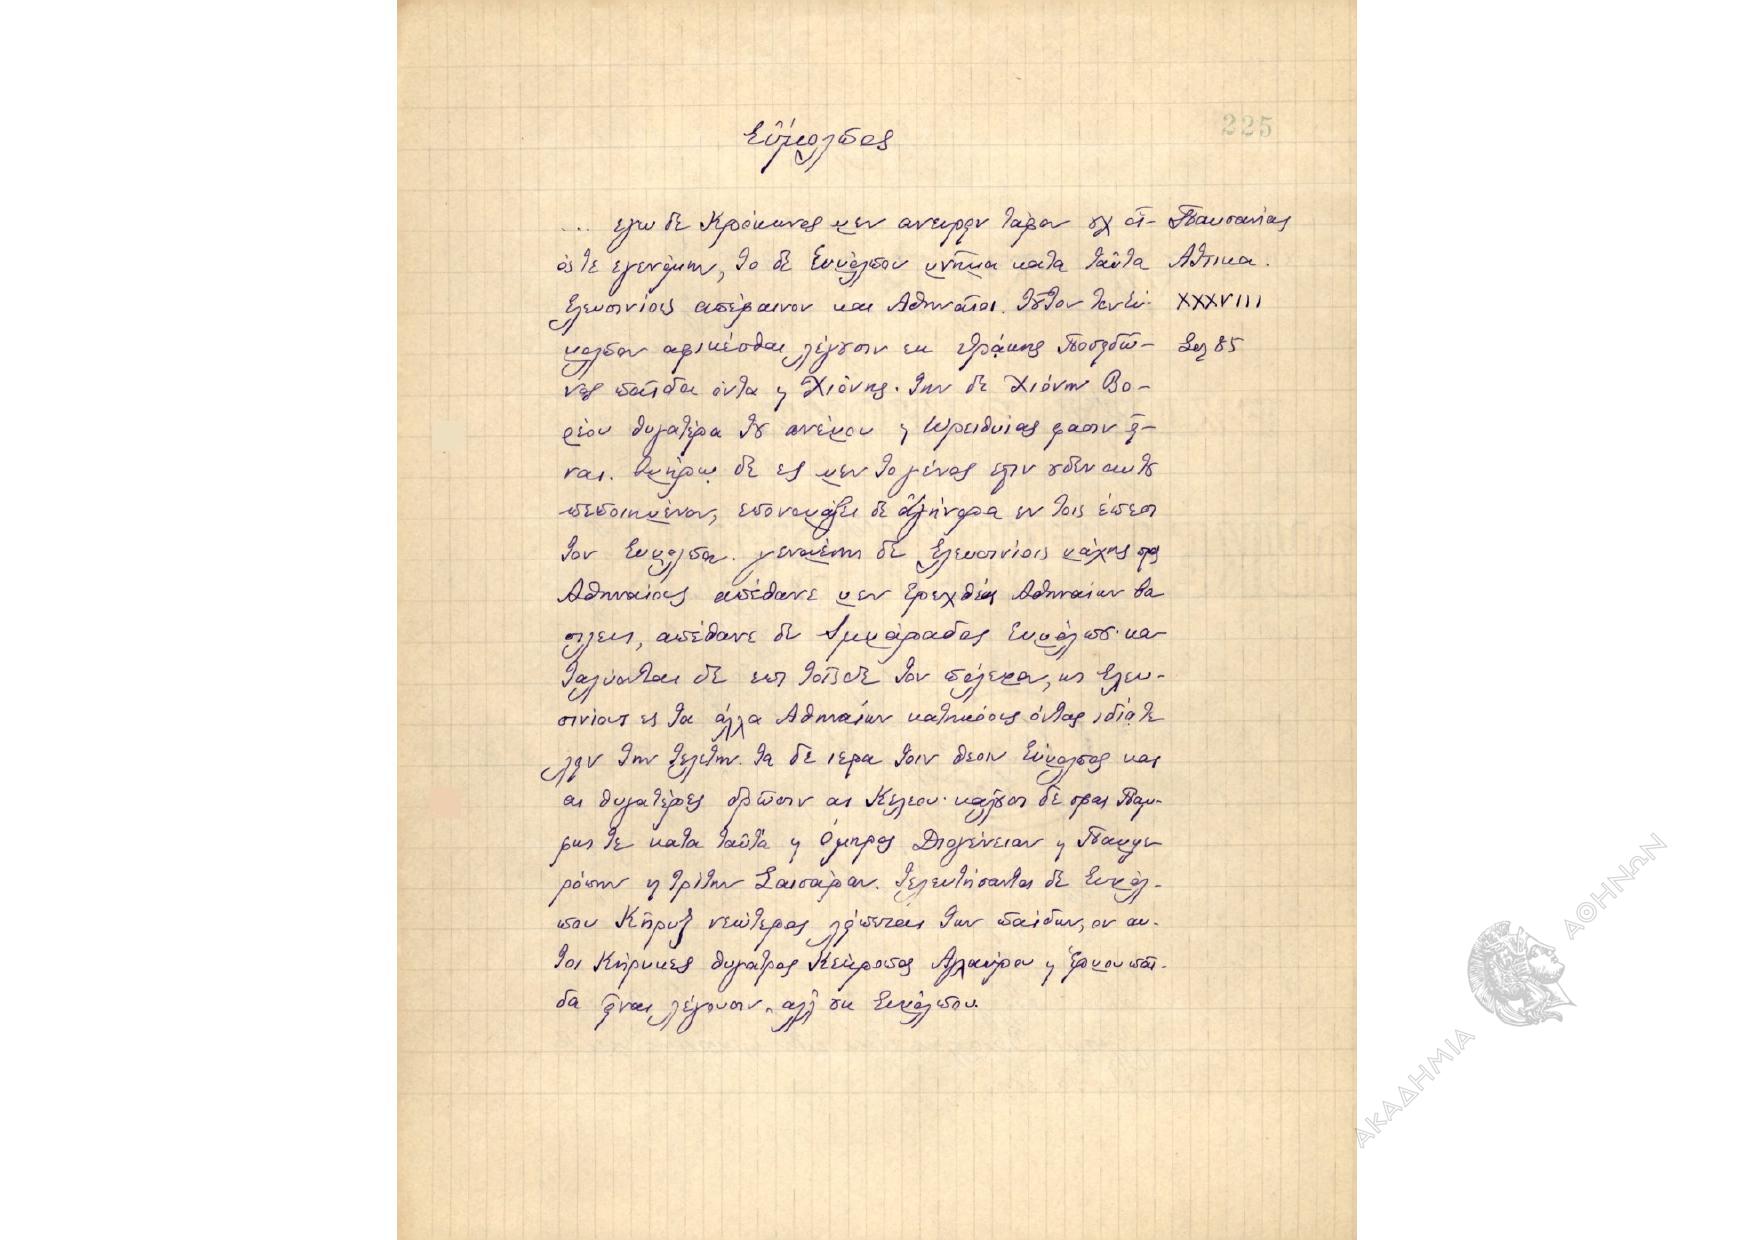 Εύμολπος
225
... εγω δε Κρόκωνος μεν ανευρειν τάφον ουχ οι- Παυσανίας
ός τε εγενόμην, το δε Ευμόλπου μνήμα κατα ταύτα Αττικα.
Ελευσινίοις απέφαινον και Αθηναίοι. τούτον τον Εύ- XXXVIII
μολπον αφικέσθαι λέγουσιν εκ Θράκης Ποσειδώ- Σελ 85
νος παίδα όντα ϗ Χιόνης. την δε Χιόνην Βο-
ρέου θυγατέρα του ανέμου ϗ Ωρειθυίας φασιν εί-
ναι. Ομήρω δε ες μεν το γένος εστιν ουδεν αυτου
πεποιημένον, επονομάζει δε αγήνορα εν τοις έπεσι
τον Ευμολπον. γενομένης δε Ελευσινίοις μάχης προς
Αθηναίους απέθανε μεν Ερεχθεύς Αθηναίων βα
σιλευς, απέθανε δε Ιμμάραδος Ευμόλπου· κα-
ταλύονται δε επι τοίσδε τον πόλεμον, ως Ελευ-
σινίους ες τα άλλα Αθηναίων κατηκόους όντας ιδία τε
λειν την τελετην. τα δε ιερα τοιν θεοιν Εύμολπος και
αι θυγατέρες δρώσιν αι Κελεου· καλούσι δε σφας Παμ-
φως τε κατα ταύτα ϗ Όμηρος Διογένειαν ϗ Παμμε
ρόπην ϗ τρίτην Σαισάραν. τελευτήσαντος δε Ευμόλ-
που Κήρυξ νεώτερος λείπεται των παίδων, ον αυ-
τοι Κήρυκες θυγατρος Κέκροπος Αγλαύρου ϗ Ερμου παί-
δα είναι λέγουσιν, αλλ ουκ Ευμόλπου.
ΑΚΑΔΗΜΙΑ ΑΘΗΝΩΝ